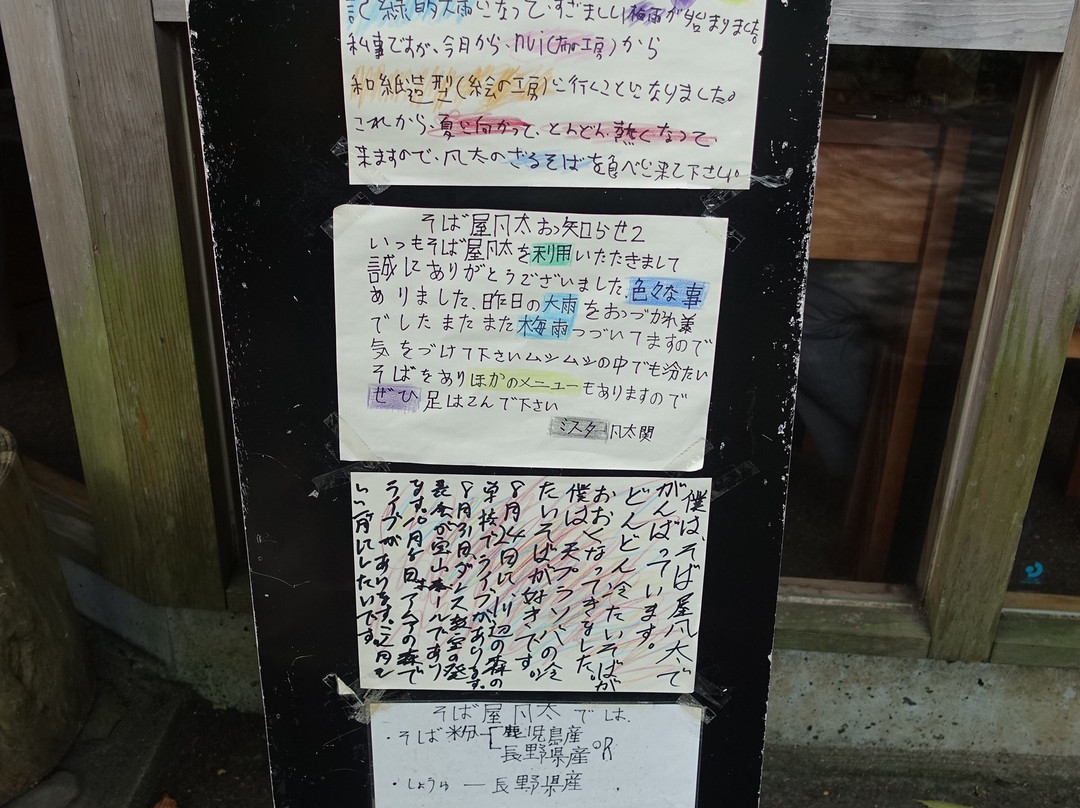 記録的大雨になって、すざましい梅雨が始まりました
私事ですが、今月から、nui(布の工房)から
和紙造型(絵の工房)に行くことになりました。
これから、夏に向かって、どんどん熱くなって
来ますので、凡太のざるそばを食べに来て下さい。
そば屋凡太お知らせ2
いつもそば屋凡太を利用いたたきまして
誠にありがとうございました 色々な事
ありました、昨日の大雨をおつがれ様
でした またまた梅雨つづいてますので
気をづけて下さいムシムシの中でも冷たい
そばをありほかのメニューもありますので
ぜひ足はこんで下さい
ミスター凡太関
僕は、そば屋凡太で
がんばっています。
どんどん冷たいそばが
おおくなってきました。
僕は、天プラソバの冷
たいそばが好きです。
8月24日に、川辺の森の
学校でライブがあります。
8月31日、ダンス教室の発
表会が宝山ホールであり
ます。10月5日、アマの森で
ライブがあります。
いい月にしたいです。
そば屋凡太では、
・そば粉 鹿児島産
長野県産 OR
・しょうゆ ー 長野県産